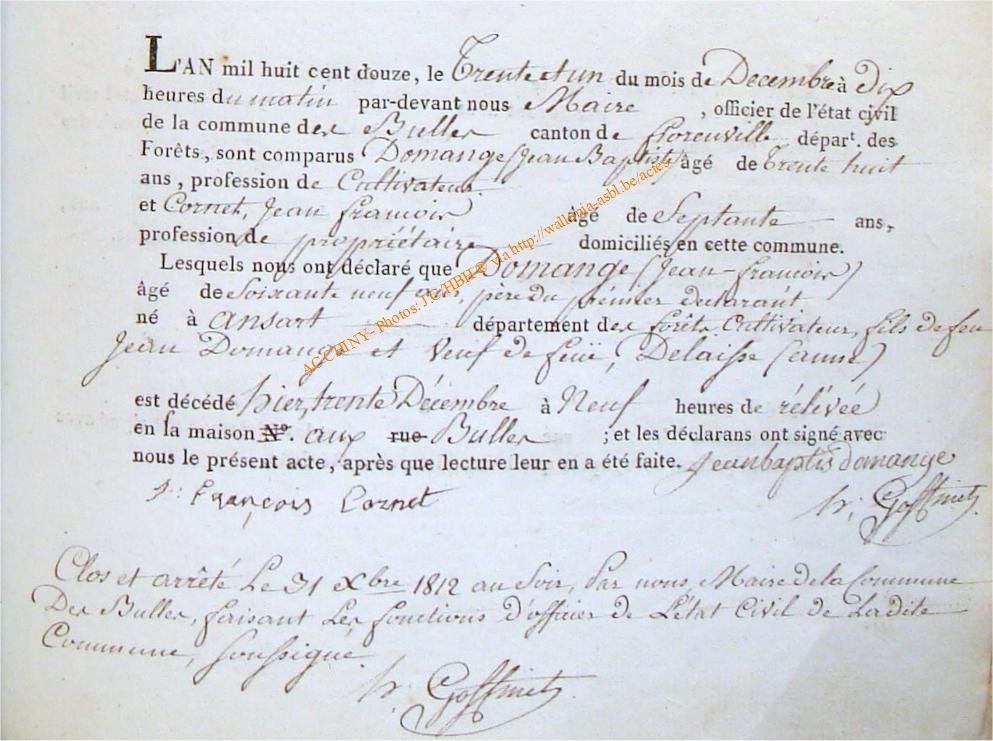 L'AN mil huit cent douze, le Trente et un du mois de Decembre à dix
heures du matin par-devant nous Maire , officier de l'état civil
de la commune des Bulles canton de florenville dépar<sup>t</sup>. des
Forêts, sont comparus Domange (Jean Baptiste) âgé de trente huit
ans, profession de Cultivateur.
et Cornet, Jean francois âgé de Septante ans,
profession de propriétaire domiciliés en cette commune.
Lesquels nous ont déclaré que Domange (Jean-francois)
âgé de Soixante neuf ans, père du premier declarant
né à ansart département des forêts Cultivateur, fils de feu
Jean Domange et Veuf de feüe, Delaisse (anne)
est décédé hier, trente Décembre à Neuf heures de rélévée
en la maison N°. aux rue Bulles ; et les déclarans ont signé avec
nous le présent acte, après que lecture leur en a été faite. Jeanbaptis domange
j: François Cornet h. Goffinet
Clos et arrêté Le 31 Xbre 1812 au Soir, Par nous, Maire de la Commune
Des Bulles, faisant Les fonctions d'officier de L'état Civil de Ladite
Commune, Soussigné.
h. Goffinet
AC CHINY- Photos: J C/HBH © via http://wallonia-asbl.be/actes